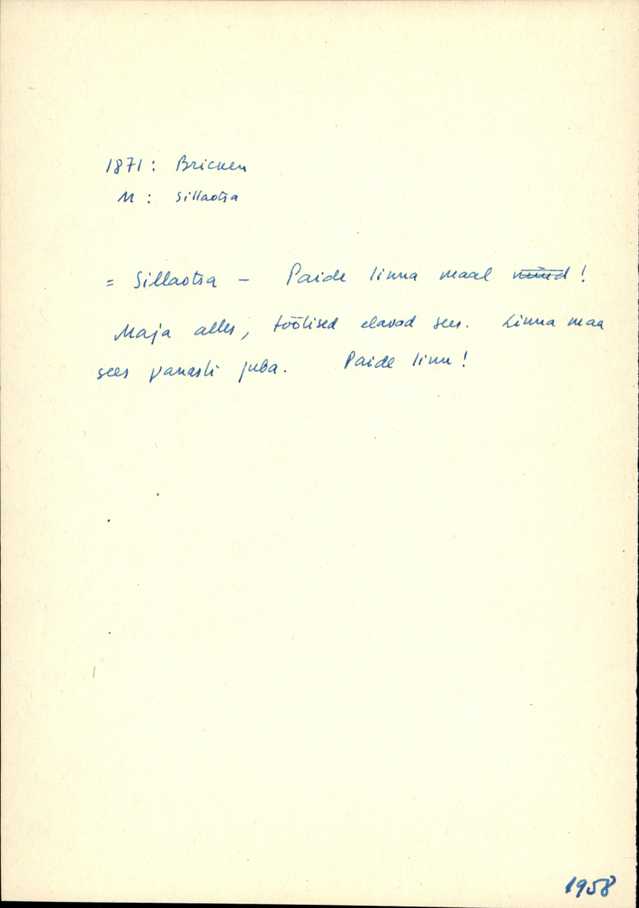 1871: Bricken
M: Sillaotsa
= Sillaotsa - Paide linna maal nüüd!
Maja alles, töölised elavad sees. Linna maa
sees vanasti juba. Paide linn!
1958